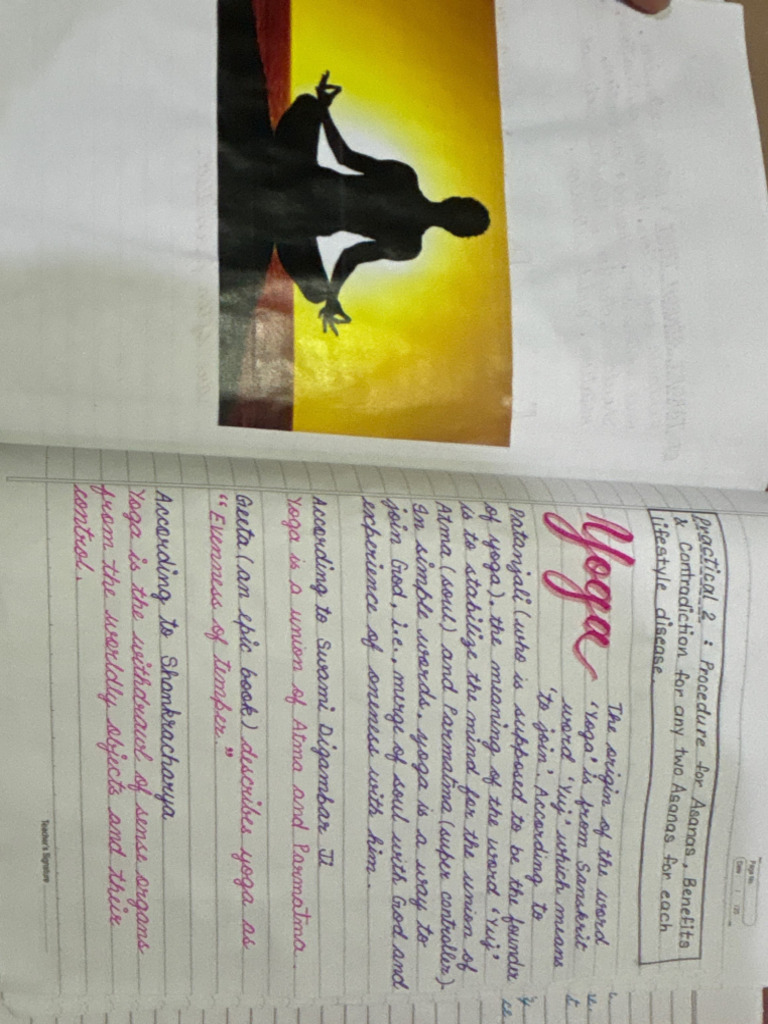 Page No.
Date / / 20
Practical 2 : Procedure for Asanas, Benefits
& Contradiction for any two Asanas for each
lifestyle disease.
Yoga
The origin of the word
'Yoga' is from Sanskrit
word 'Yuj' which means
'to join'. According to
Patanjali (who is supposed to be the founder
of yoga), the meaning of the word 'Yuj'
is to stabilize the mind for the union of
Atma (soul) and Parmatma (super controller).
In simple words, yoga is a way to
join God, i.e., merge of soul with God and
experience of oneness with him.
According to Swami Digambar Ji
Yoga is a union of Atma and Parmatma.
Geeta (an epic book) describes yoga as
"Evenness of temper."
According to Shankracharya
Yoga is the withdrawl of sense organs
from the worldly objects and their
control.
Teacher's Signature